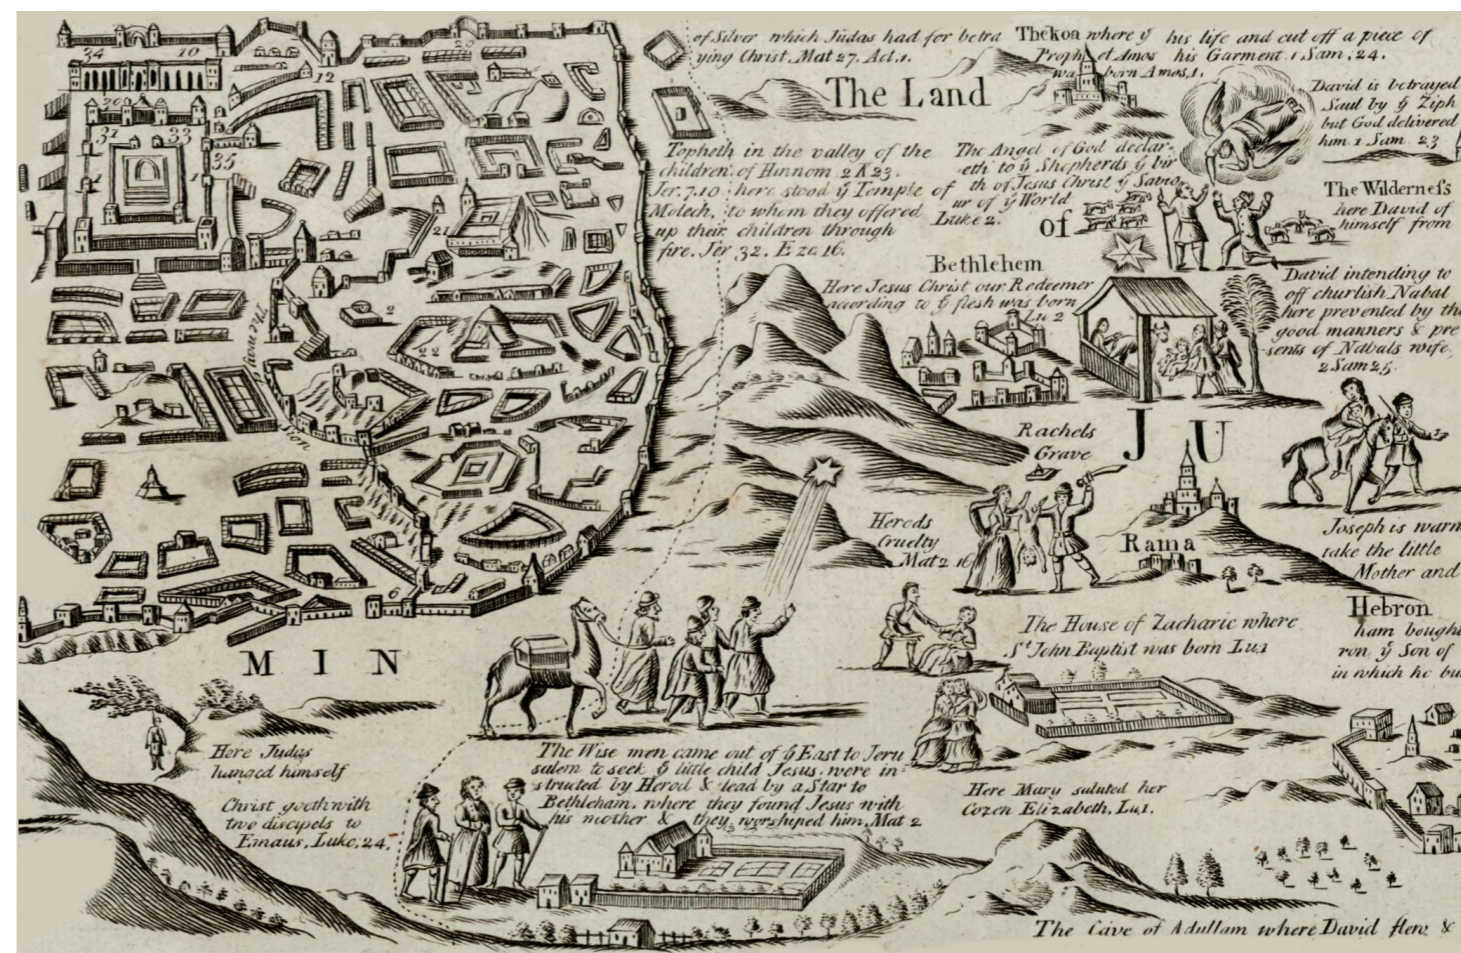 34
10
20
12
30
31
33
35
1
1
21
2
22
The mount
Sion
6
M I N
of Silver which Judas had for betra
ying Christ. Mat 27. Act. 1.
The Land
Thekoa where ÿ
Prophet Amos
was born Amos, 1.
his life and cut off a piece of
his Garment. 1 Sam, 24.
David is betrayed
Saul by ÿ Ziph
but God delivered
him 1 Sam. 23
Topheth in the valley of the
children of Hinnom 2 K 23.
Jer. 7.10 here stood ÿ Temple of
Molech, to whom they offered
up their children through
fire. Jer 32. Eze 16.
The Angel of God declar-
eth to ÿ Shepherds ÿ bir
th of Jesus Christ ÿ Savio
ur of ÿ World
Luke 2.
of
The Wilderness
here David of
himself from
Bethlehem
Here Jesus Christ our Redeemer
according to ÿ flesh was born
Lu 2
David intending to
off churlish Nabal
here prevented by th
good manners & pre
sents of Nabals wife
2 Sam 25.
J U
Rachels
Grave
Herods
Cruelty
Mat 2 16
Rama
Joseph is warn
take the little
Mother and
Hebron
ham bought
ron ÿ Son of
in which he bu
The House of Zacharie where
St John Baptist was born Lu,1
Here Judas
hanged himself
Christ goeth with
two discipels to
Emaus, Luke, 24.
The Wise men came out of ÿ East to Jeru
salem to seek ÿ little child Jesus, were in-
structed by Herod & lead by a Star to
Bethleham, where they found Jesus with
his mother & they worshiped him, Mat 2
Here Mary saluted her
Cozen Elizabeth, Lu,1.
The Cave of Adullam where David flew &